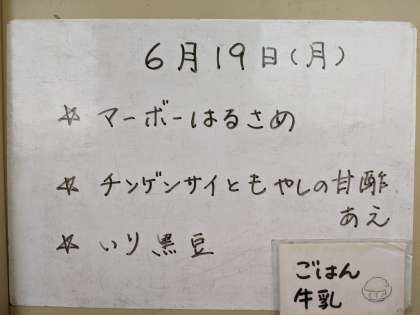 6月19日(月)
☆ マーボーはるさめ
☆ チンゲンサイともやしの甘酢
あえ
☆ いり黒豆
ごはん
牛乳